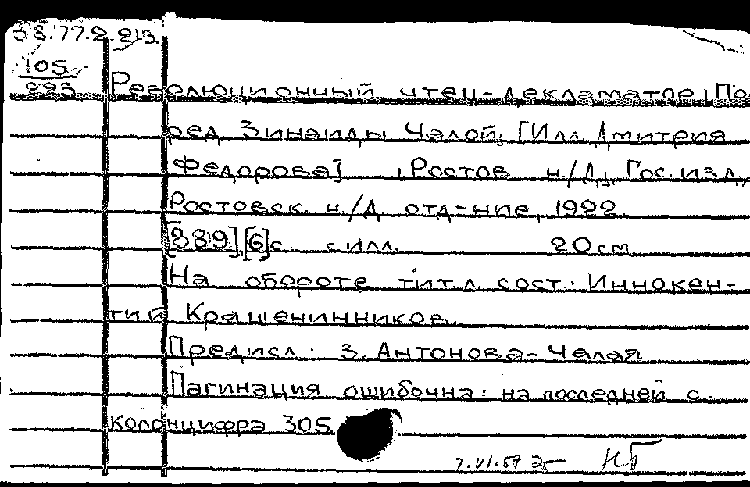 38.77.2.213
105
223
Революционный чтец-декламатор. По
ред Зинаиды Чалой, [Илл Дмитрия
Федорова]. Ростов н/Д, Гос.изд.
Ростовск. н/Д отд-ние, 1922.
[339],[6]с. с илл. 20 см
На обороте тит.л. сост: Иннокен-
тий Крашенинников.
Предисл: З. Антонова-Чалая
Пагинация ошибочна: на последней с.
колонцифра 305
7.VI.57 НБ